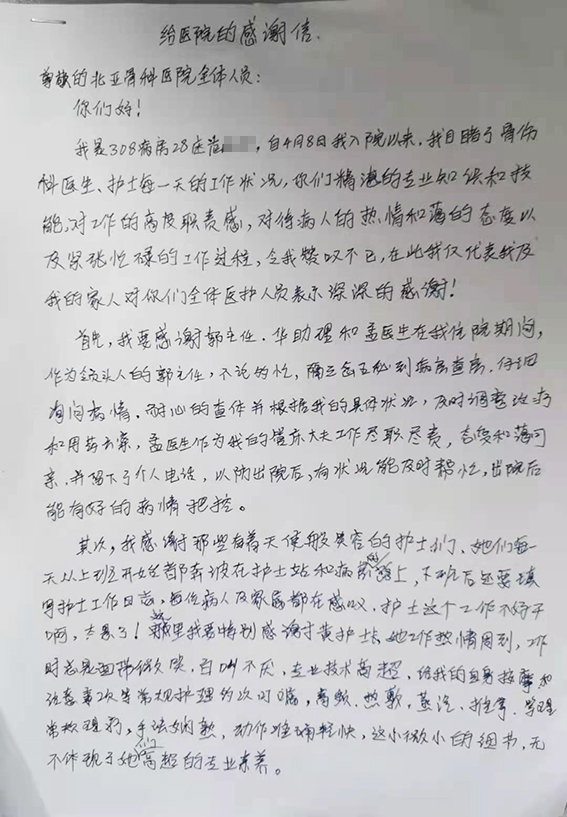 给医院的感谢信.
尊敬的北亚骨科医院全体人员：
你们好！
我是308病房28床范 ，自4月8日我入院以来，我目睹了骨伤
科医生、护士每一天的工作状况，你们精湛的专业知识和技
能，对工作的高度职责感，对待病人的热情和蔼的态度以
及紧张忙碌的工作过程，令我赞叹不已，在此我仅代表我及
我的家人对你们全体医护人员表示深深的感谢！
首先，我要感谢郭主任、华助理和孟医生在我住院期间，
作为领头人的郭主任，不论多忙，隔三岔五必到病房查房、仔细
询问病情、耐心的查体并根据我的具体状况，及时调整治疗
和用药方案，孟医生作为我的管床大夫工作尽职尽责，态度和蔼可
亲，并留下了个人电话，以防出院后，有状况能及时帮忙，出院后
能有好的病情把控。
其次，我感谢那些有着天使般笑容的护士们、她们每一
天从上班开始都奔波在护士站和病房的路上，下班后还要填
写护士工作日志，每位病人及家属都在感叹，护士这个工作不好干
啊，太累了！这里我要特别感谢黄护士长，她工作热情周到，工作
时总是面带微笑，百叫不厌，专业技术高超，给我的
注意事项等常规护理 叮嘱，热敷，蒸汽，推拿、
手法娴熟，动作准确轻快，这小微小的细节，无
不体现了她们高超的专业素养。